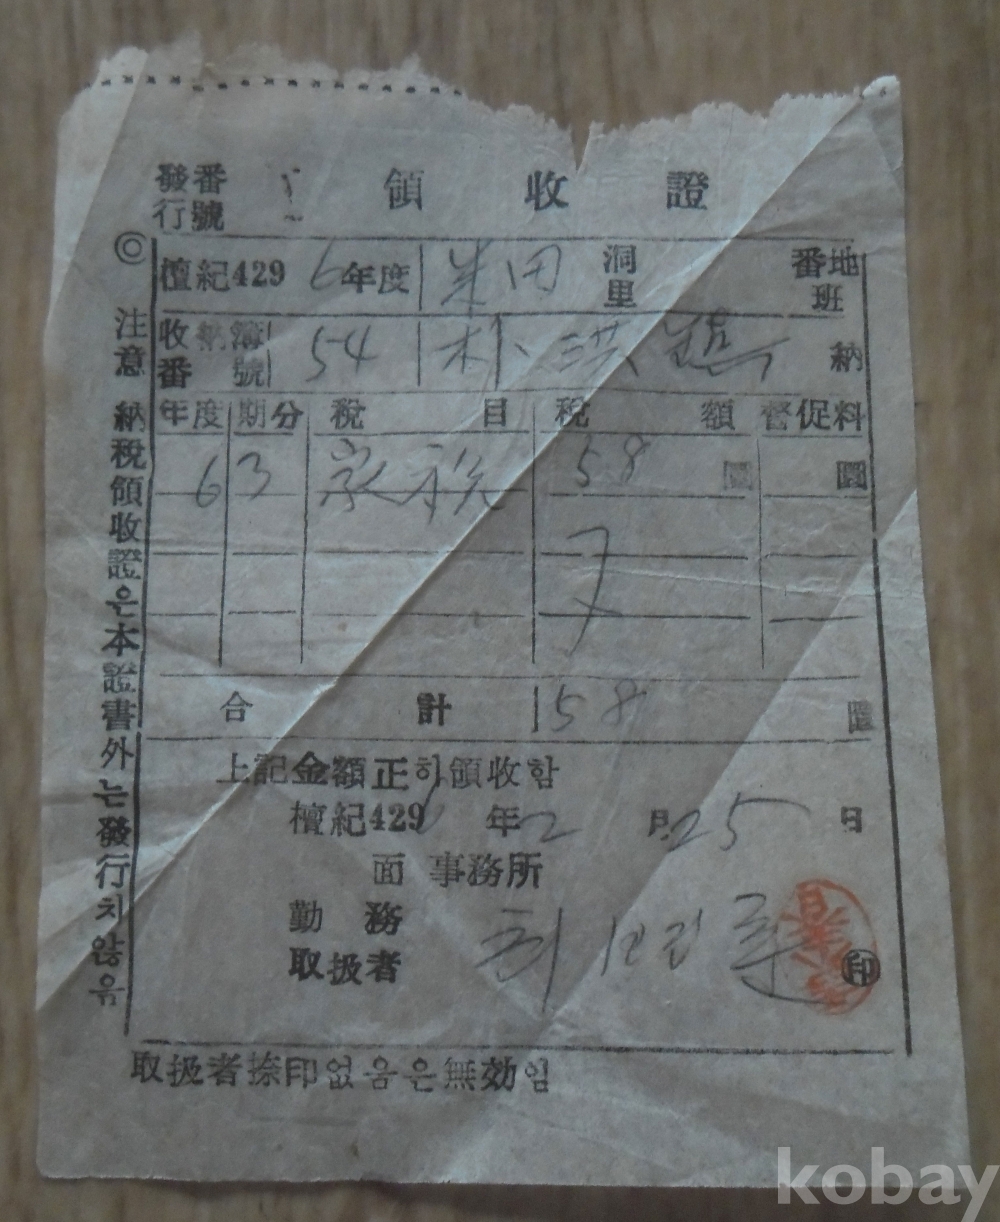 發行番號 領收證
檀紀4296年度 米田 洞里 番地班
收納簿番號 54 朴洪 納
年度 期分 稅目 稅額 督促料
6 3 家稅 58 圜 圜
合計 58 圜
上記金額正히領收함
檀紀429 年 2 月 25 日
面事務所
勤務
取扱者 최 印
取扱者捺印없음은無効임
◎注意 納稅領收證은本證書外는發行치않음
kobay